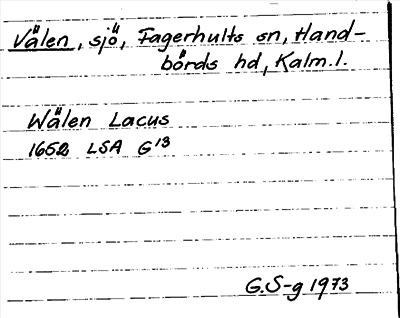 Välen, sjö, Fagerhults sn, Hand-
börds hd, Kalm.l.
Wälen Lacus
1652 LSA G13
G.S-g 1973